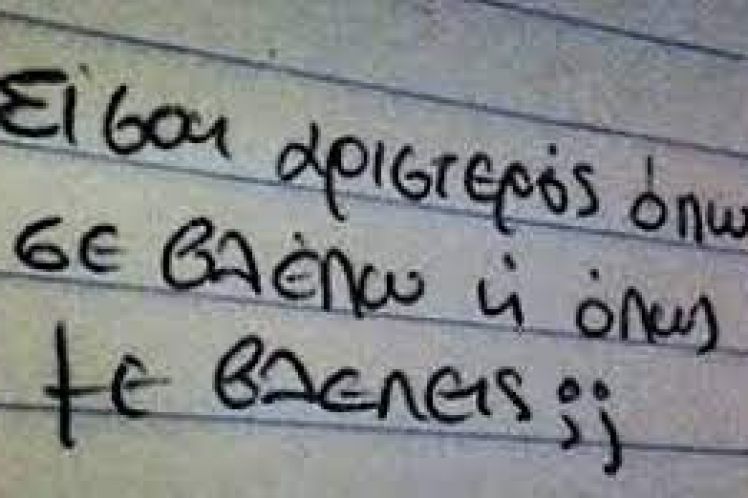 Είσαι αριστερός όπω
σε βλέπω ή όπως
με βλέπεις;;